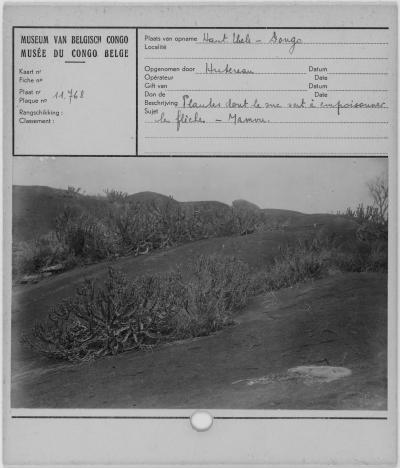 MUSEUM VAN BELGISCH CONGO
MUSÉE DU CONGO BELGE
Kaart nʳ
Fiche nº
Plaat nʳ
Plaque nº 11.768
Rangschikking :
Classement :
Plaats van opname Haut Uele - Dongo
Localité
Opgenomen door Hutereau Datum
Opérateur Date
Gift van Datum
Don de Date
Beschrijving Plantes dont le suc sert à empoisonner
Sujet la flèche - Mamvu.